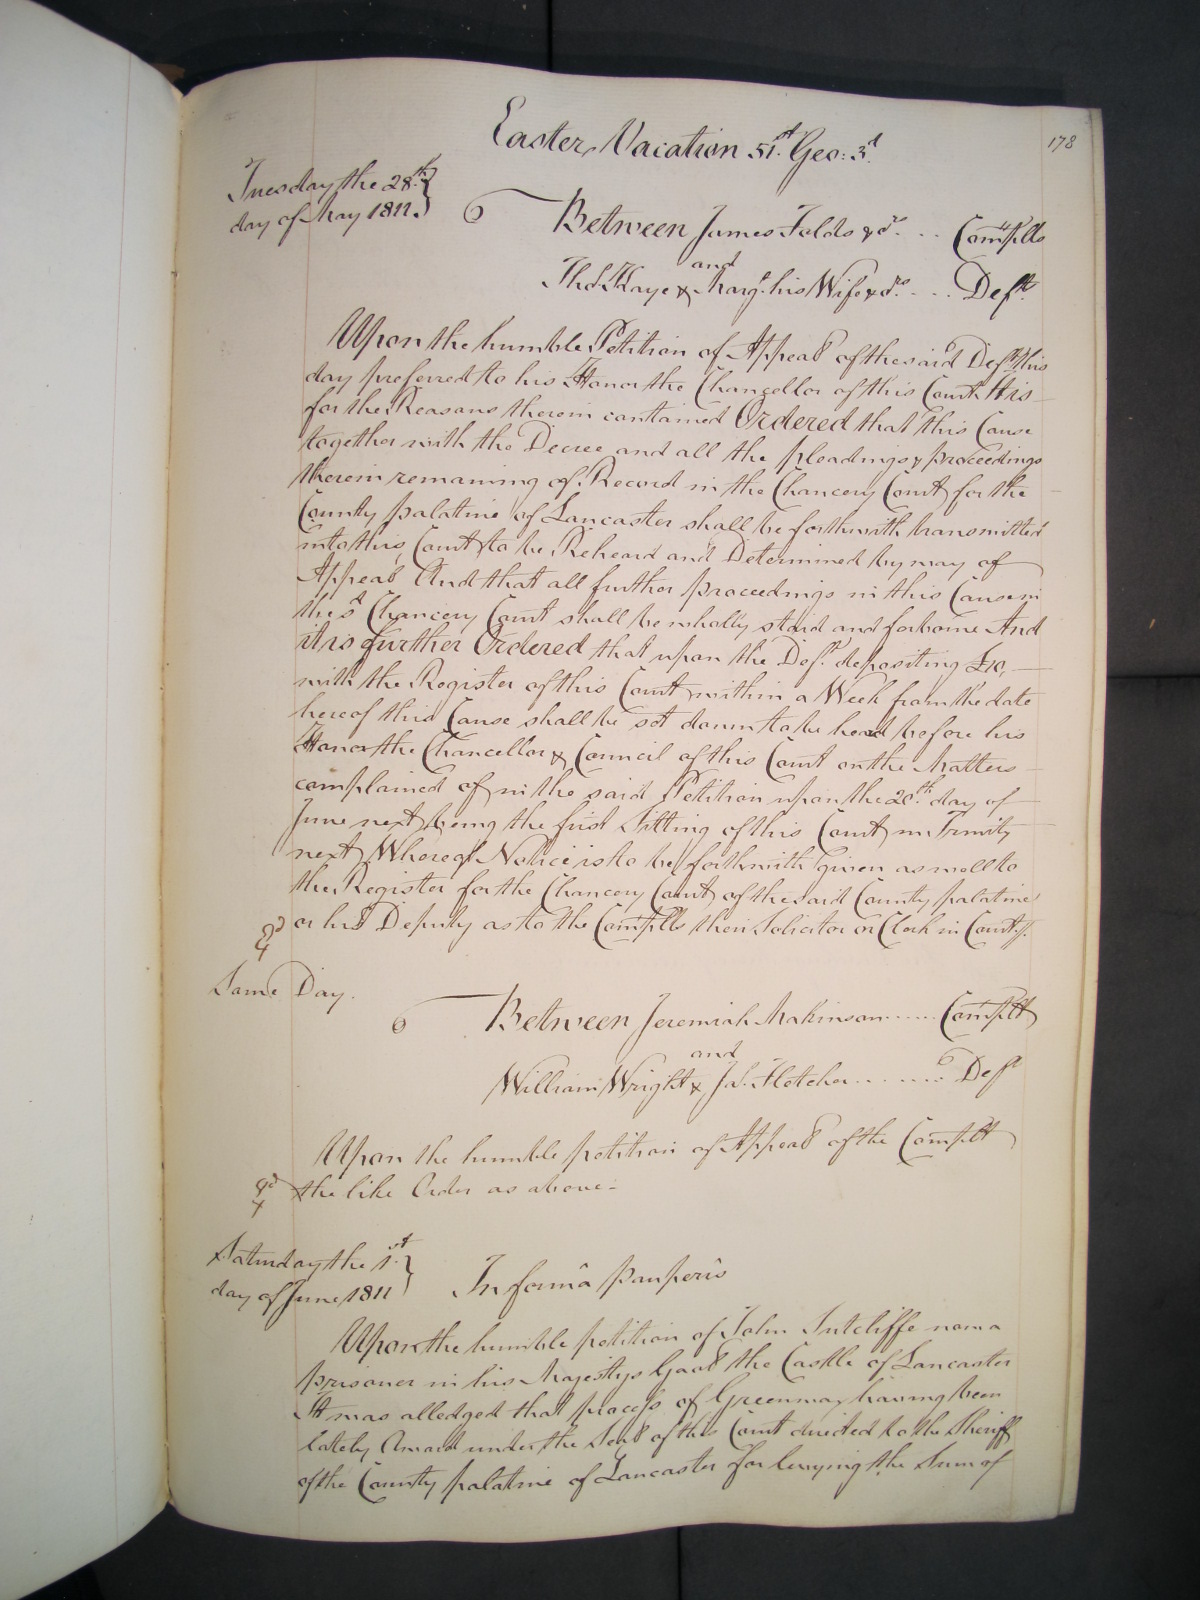 178
Easter Vacation 51st. Geo: 3d.
Tuesday the 28th.
day of May 1811.
Between James Folds & ors. ... Complts
and
Thos. Kaye & Margt. his Wife & ors. .... Defts.
Upon the humble Petition of Appeal of the said Defts. this
day preferred to his Honor the Chancellor of this Court It is
for the Reasons therein contained Ordered that this Cause
together with the Decree and all the pleadings & proceedings
therein remaining of Record in the Chancery Court for the
County palatine of Lancaster shall be forthwith transmitted
into this Court to be Reheard and Determined by way of
Appeal And that all further proceedings in this Cause in
the sd. Chancery Court shall be wholly staid and forborne And
it is further Ordered that upon the Defts. depositing £10,
with the Register of this Court within a Week from the date
hereof this Cause shall be set down to be heard before his
Honor the Chancellor & Council of this Court on the Matters
complained of in the said Petition upon the 20th. day of
June next being the first Sitting of this Court in Trinity
next Whereof Notice is to be forthwith given as well to
the Register for the Chancery Court of the said County palatine
or his Deputy as to the Complts their Solicitor or Clerk in Court.
Same Day.
Between Jeremiah Makinson ...... Complt
and
William Wright & Js. Fletcher ....... Defts
Upon the humble petition of Appeal of the Complt
the like Order as above:
Saturday the 1st.
day of June 1811
In formâ pauperis
Upon the humble petition of John Sutcliffe now a
prisoner in his Majestys Gaol the Castle of Lancaster
It was alledged that process of Greenway having been
lately Award under the Seal of this Court directed to the Sheriff
of the County palatine of Lancaster for levying the Sum of